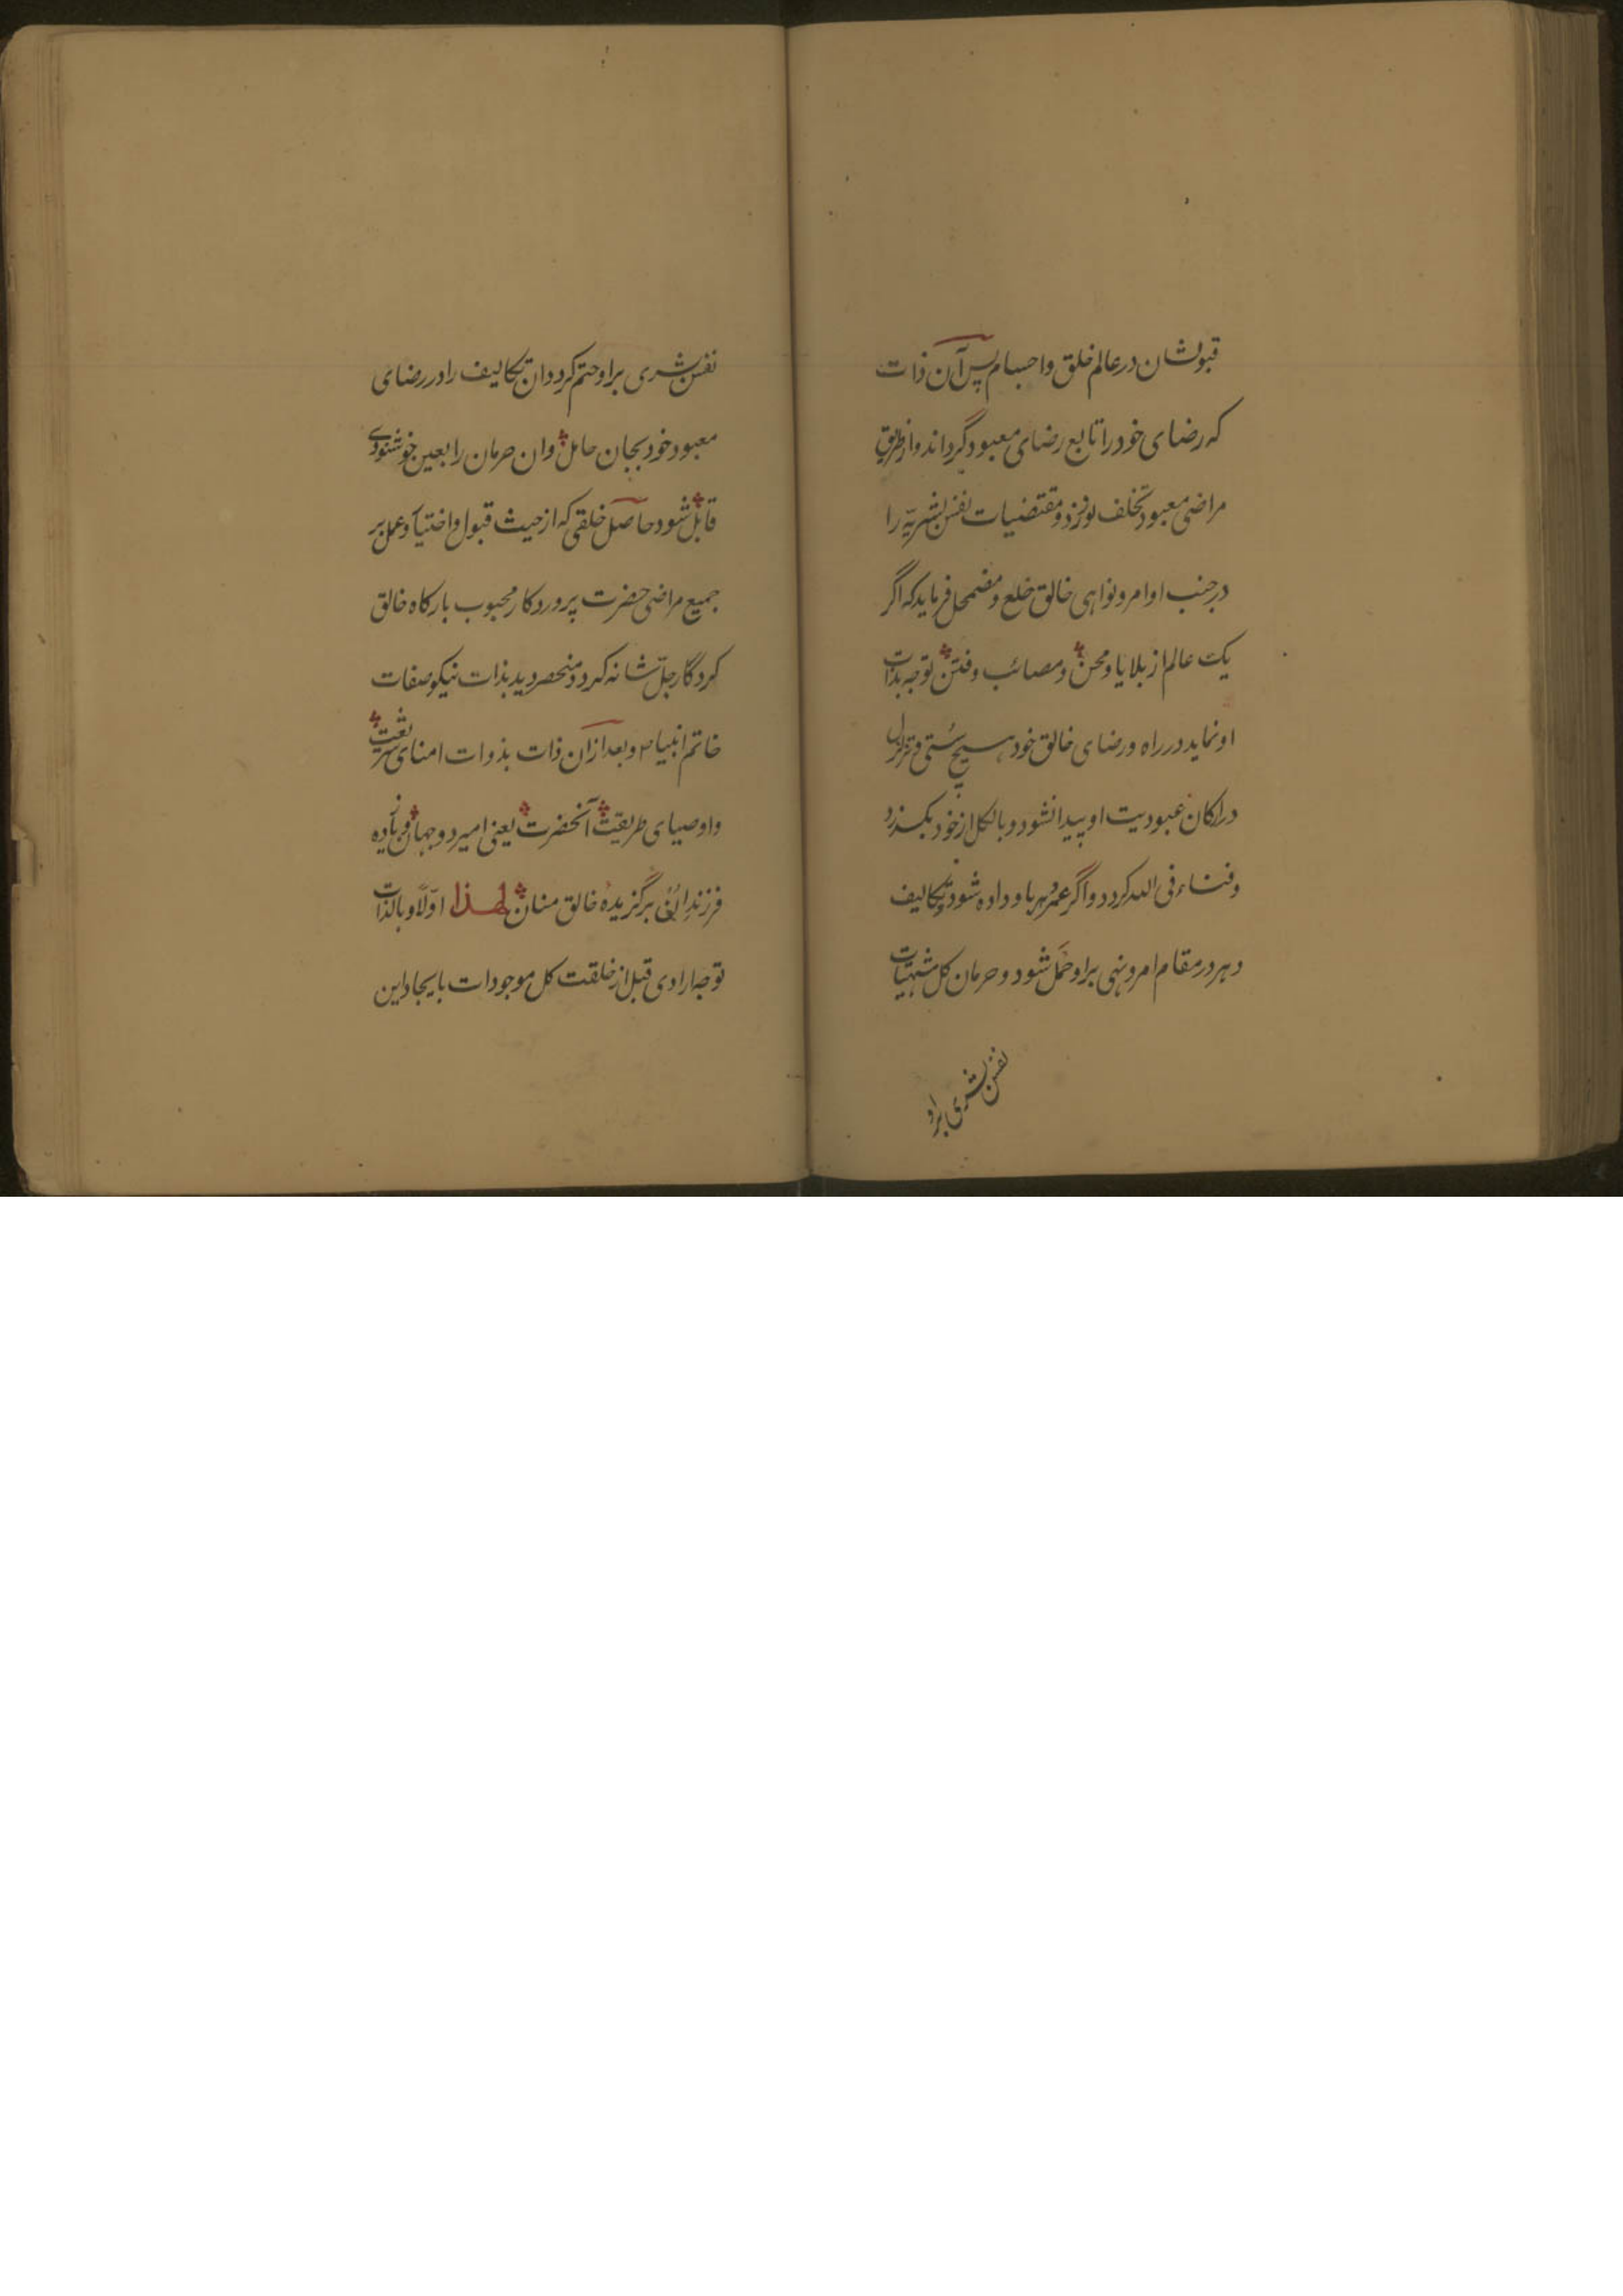 قبولشان در عالم خلق و اجسام پس آن ذات
که رضای خود را تابع رضای معبود گرداند و از طریق
مراضی معبود تخلف نورزد و مقتضیات نفس بشریّه را
در جنب اوامر و نواهی خالق خلع و مضمحل فرماید که اگر
یک عالم از بلایا و محن و مصائب و فتن توجه بذات
او نماید در راه و رضای خالق خود هیچ سستی و تزلزل
در ارکان عبودیت او پیدا نشود و بالکل از خود بگذرد
و فناء فی الله کردد و اگر عمر دهر باو داده شود و تکالیف
دهر در مقام امر و نهی بر او حمل شود و حرمان کل مشتهیات
نفس بشری بر او
نفس بشری بر او حتم کردد ان تکالیف را در رضای
معبود خود بجان حامل و ان حرمان را بعین خوشنودی
قابل شود حاصل خلقی که از حیث قبول و اختیار و عمل بر
جمیع مراضی حضرت پروردکار محبوب بارکاه خالق
کردکار جلّ شانه کردد منحصر دید بذات نیکو صفات
خاتم انبیا ص و بعد از ان ذات بذوات امنای شریعت
و اوصیای طریقت آنحضرت یعنی امیر دو جهان و یازده
فرزند برگزیده خالق منان لهذا اوّلا و بالذات
توجه ارادی قبل از خلقت کل موجودات بایجاد این